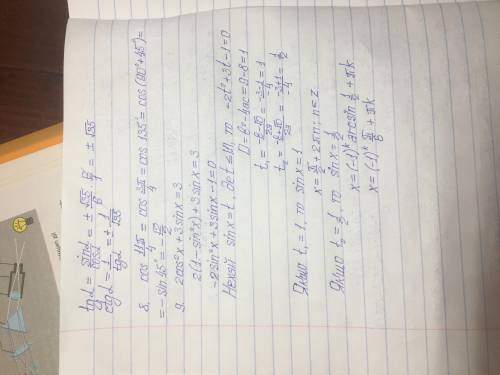 tgα = sinα/cosα = ± √35/6 · 6/1 = ± √35
ctgα = 1/tgα = ± 1/√35
8. cos 11π/4 = cos 3π/4 = cos 135° = cos (90°+45°) =
= - sin 45° = - √2/2
9. 2cos²x + 3sinx = 3
2(1 - sin²x) + 3sinx = 3
-2sin²x + 3sinx - 1 = 0
Нехай sinx = t, де t ≤ |1|, то -2t² + 3t - 1 = 0
D = b² - 4ac = 9 - 8 = 1
t₁ = -b-√D/2a = -3-1/-4 = 1
t₂ = -b+√D/2a = -3+1/-4 = 1/2
Якщо t₁ = 1, то sinx = 1
x = π/2 + 2πn; n ∈ z
Якщо t₂ = 1/2, то sinx = 1/2
x = (-1)ᵏ arcsin 1/2 + πk
x = (-1)ᵏ π/6 + πk